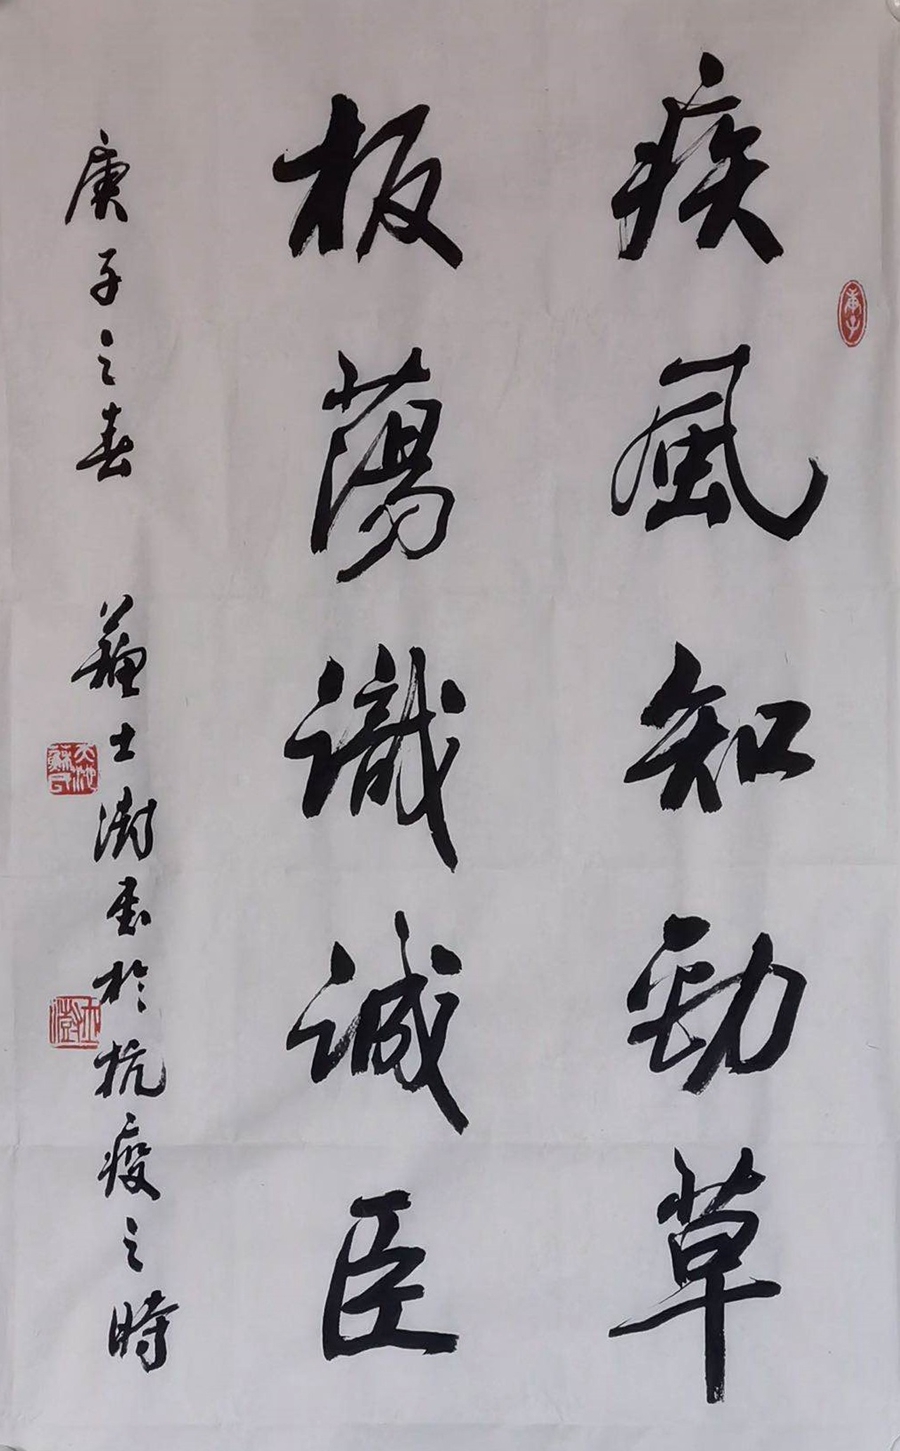 疾風知勁草
板蕩識誠臣
庚子之春 蘇士澍書於抗疫之時
庚子